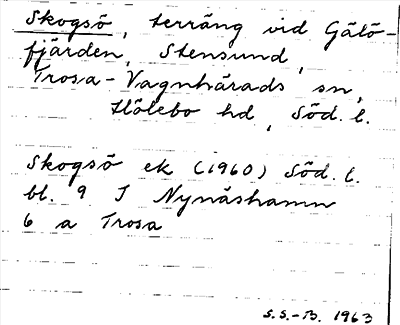 Skogsö, terräng vid Gälö-
fjärden, Stensund,
Trosa-Vagnhärads sn,
Hölebo hd, Söd. l.
Skogsö ek (1960) Söd. l.
bl. 9 I Nynäshamn
6 a Trosa
S.S.-B. 1963